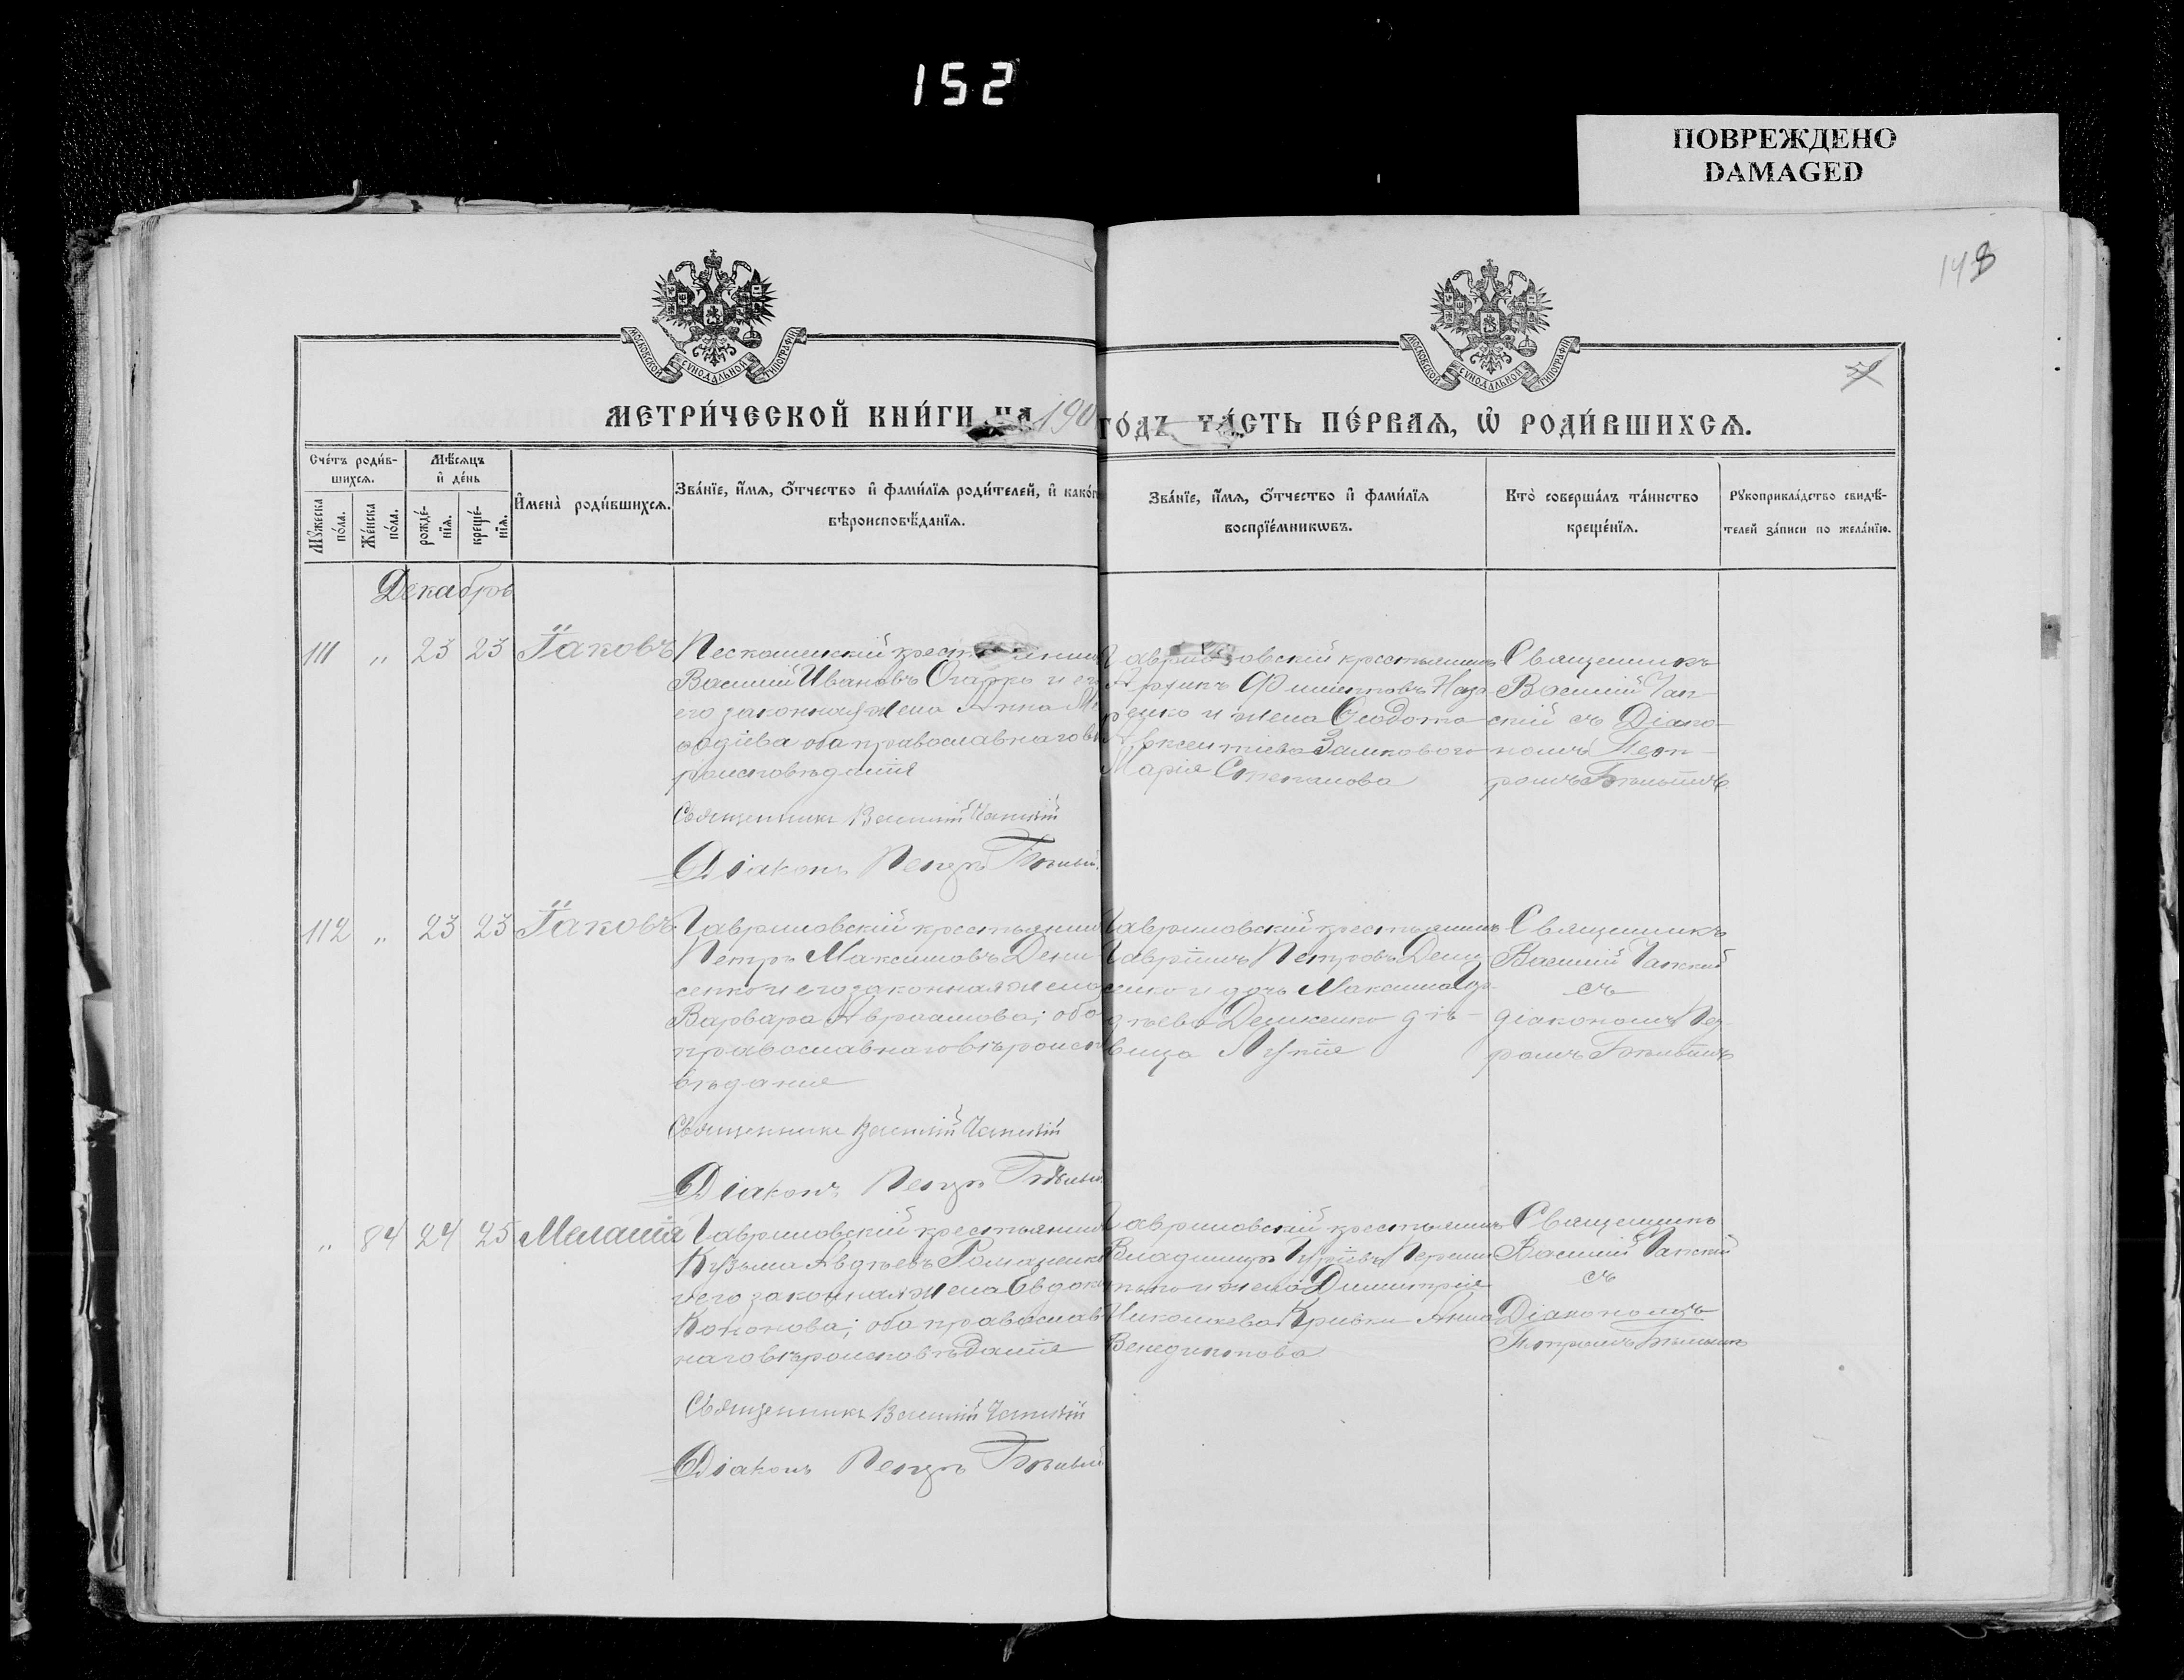 152
ПОВРЕЖДЕНО
DAMAGED
148
МОСКОВСКОЙ СУНОДАЛЬНОЙ ТИПОГРАФІИ
МОСКОВСКОЙ СУНОДАЛЬНОЙ ТИПОГРАФІИ
МЕТРИ́ЧЕСКОЙ КНИ́ГИ НА 190
ГО́ДЪ ЧА́СТЬ ПЕ́РВАѦ, Ѽ РОДИ́ВШИХСѦ.
Сче́тъ роди́в-
шихсѧ.
Мꙋ́жеска
по́ла.
Же́нска
по́ла.
Мѣ́сѧцъ
и҆ де́нь
рожде́-
нїѧ.
креще́-
нїѧ.
И҆мена̀ роди́вшихсѧ.
Зва́нїе, и҆́мѧ, ѻ҆́тчество и҆ фами́лїѧ роди́телей, и҆ како́г
вѣроисповѣ́данїѧ.
Зва́нїе, и҆́мѧ, ѻ҆́тчество и҆ фами́лїѧ
воспрїе́мникѡвъ.
Кто̀ соверша́лъ та́инство
креще́нїѧ.
Рꙋкоприкла́дство свидѣ́-
телей за́писи по жела́нїю.
Декабрь
111 " 23 23 Іаковъ
Пескошинскій
Василий Ивановъ Огарко и его
его законная жена Анна
оба православнаго вѣ
роисповѣданія
Священникъ Василій
Діаконъ Петръ Бѣлый
Гавриловскій крестьянинъ
Филипповъ Наза
ренко и жена Феодота
Авксентіева
Марія Степанова
Священникъ
Василій
скій съ Діако-
номъ Пет-
ромъ Бѣлымъ
112 " 23 23 Іаковъ
Гавриловскій крестьянин
Петръ Максимовъ Дени
сенко и его законная жена
Варвара Авраамова; оба
православнаго вѣроиспо
вѣданія
Священникъ Василій
Діаконъ Петръ Бѣлый
Гавриловскій крестьянинъ
Гавріилъ Петровъ Дени
сенко и дочь Максима
Денисенко дѣ-
вица
Священникъ
Василій
съ
діакономъ Пет
ромъ Бѣлымъ
" 84 24 25 Меланія
Гавриловскій крестьянин
Кузьма Авдѣевъ Романенко
и его законная жена Евдокі
Кононова; оба православ
наго вѣроисповѣданія
Священникъ Василій
Діаконъ Петръ Бѣлый
Гавриловскій крестьянинъ
Владиміръ Гуріевъ
и жена Димитрія
Николаева Кривки Анна
Венедиктова
Священникъ
Василій
съ
Діакономъ
Петромъ Бѣлымъ